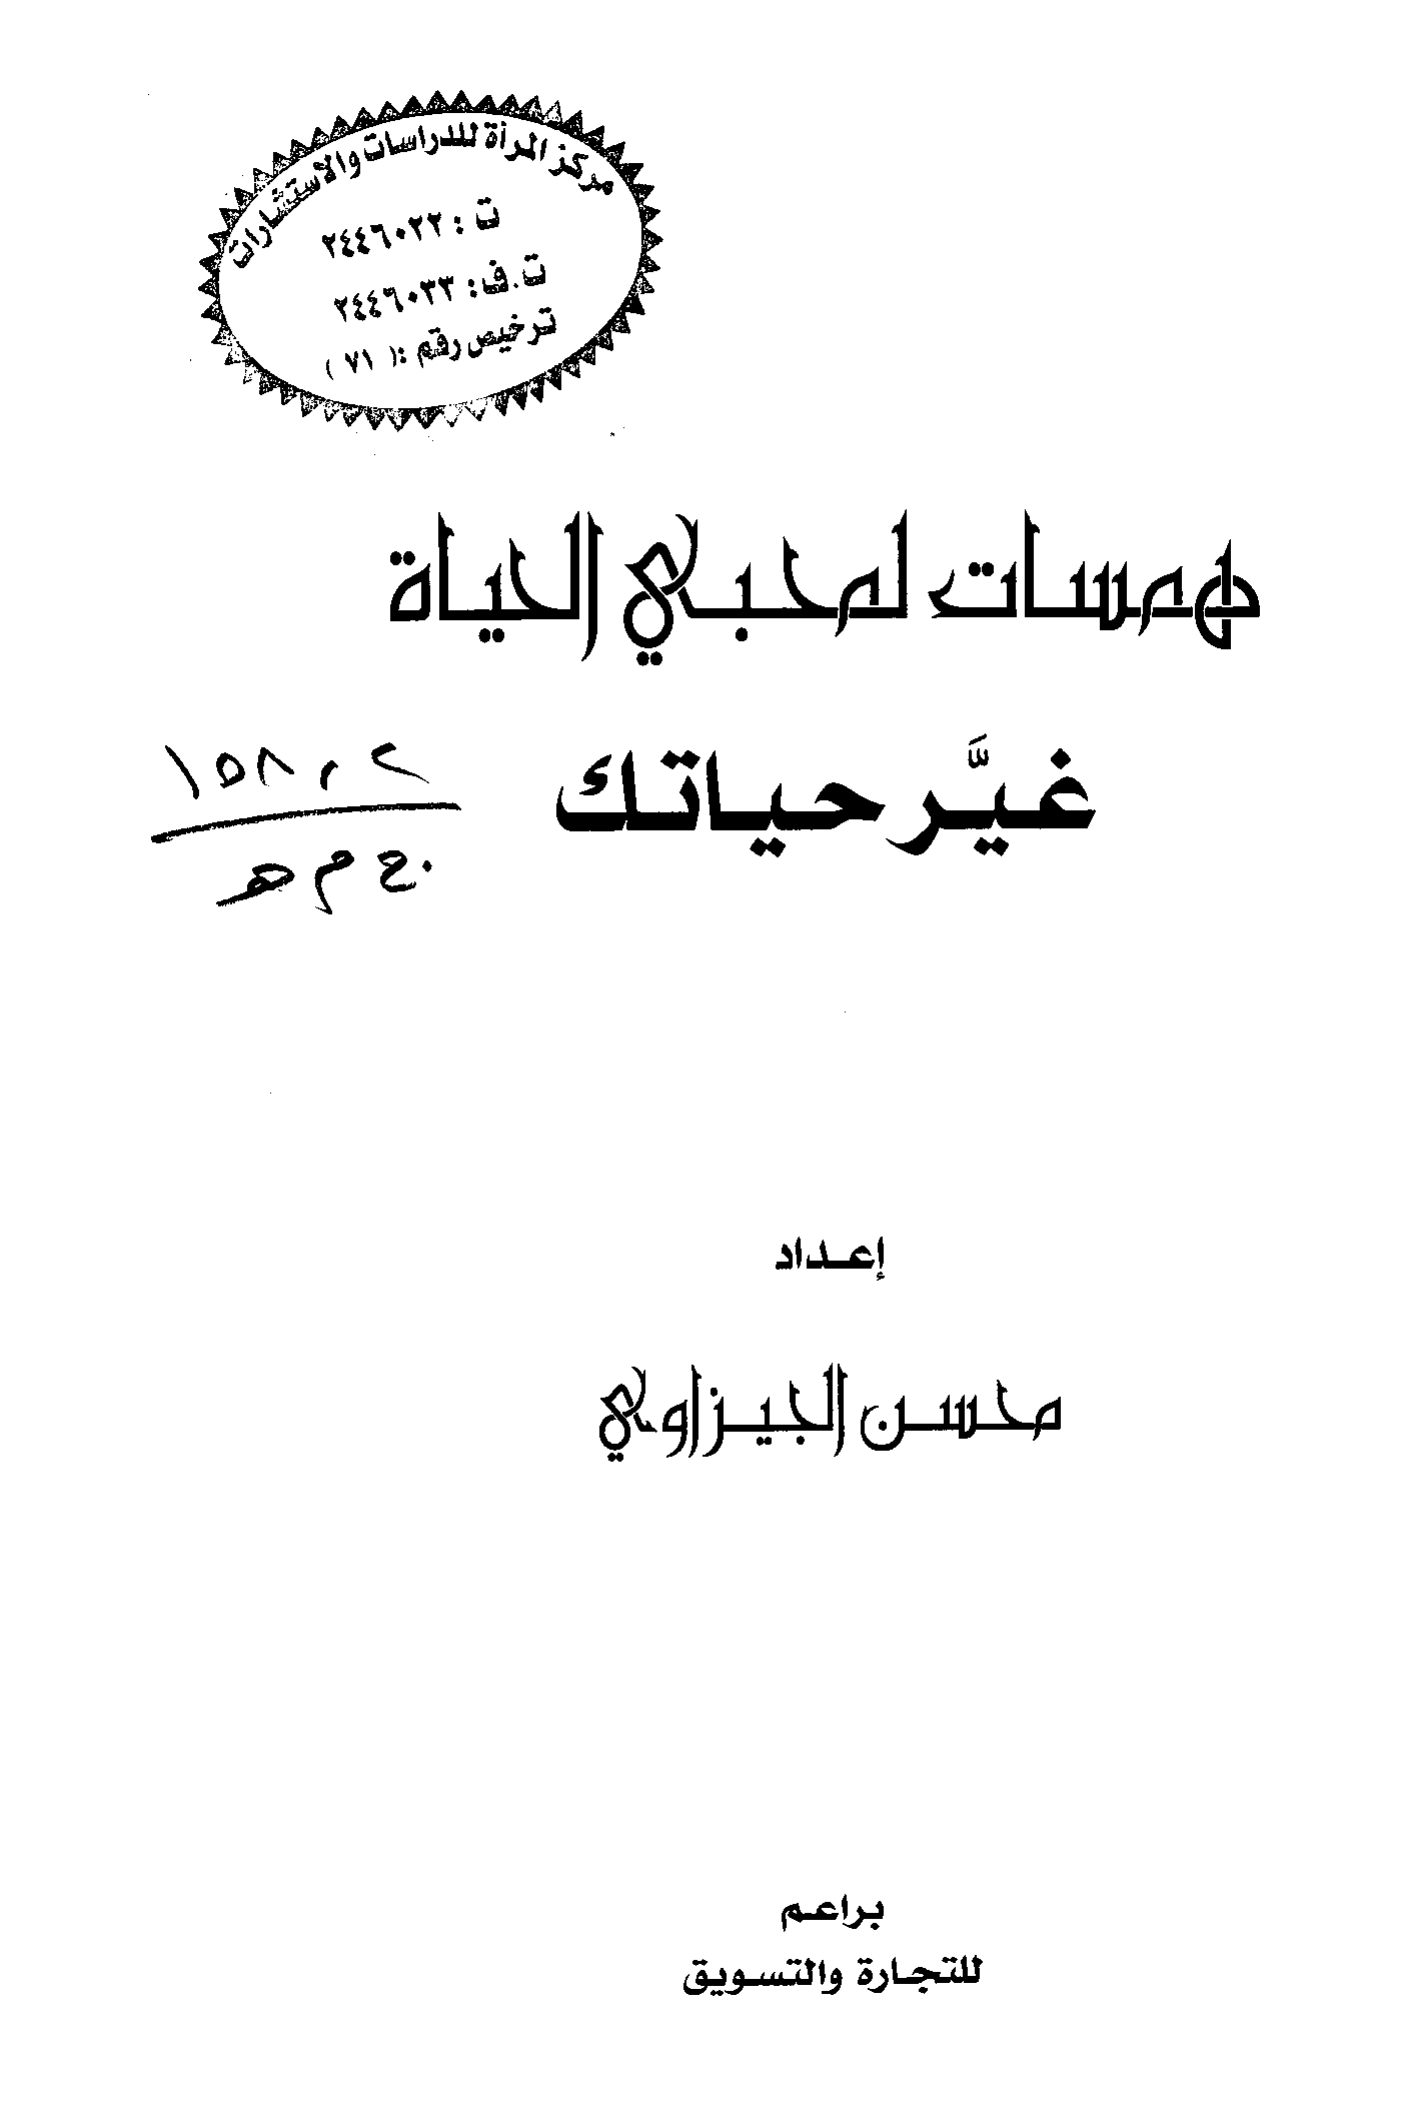 مركز المرأة للدراسات والاستشارات
ت : ٢٤٤٦٠٢٢
ت.ف: ٢٤٤٦٠٣٣
ترخيص رقم :( ٧١ )
همسات لمحبي الحياة
غيَّر حياتك
١٥٨,٢
ج م هـ
إعداد
محسن الجيزاوي
براعم
للتجارة والتسويق